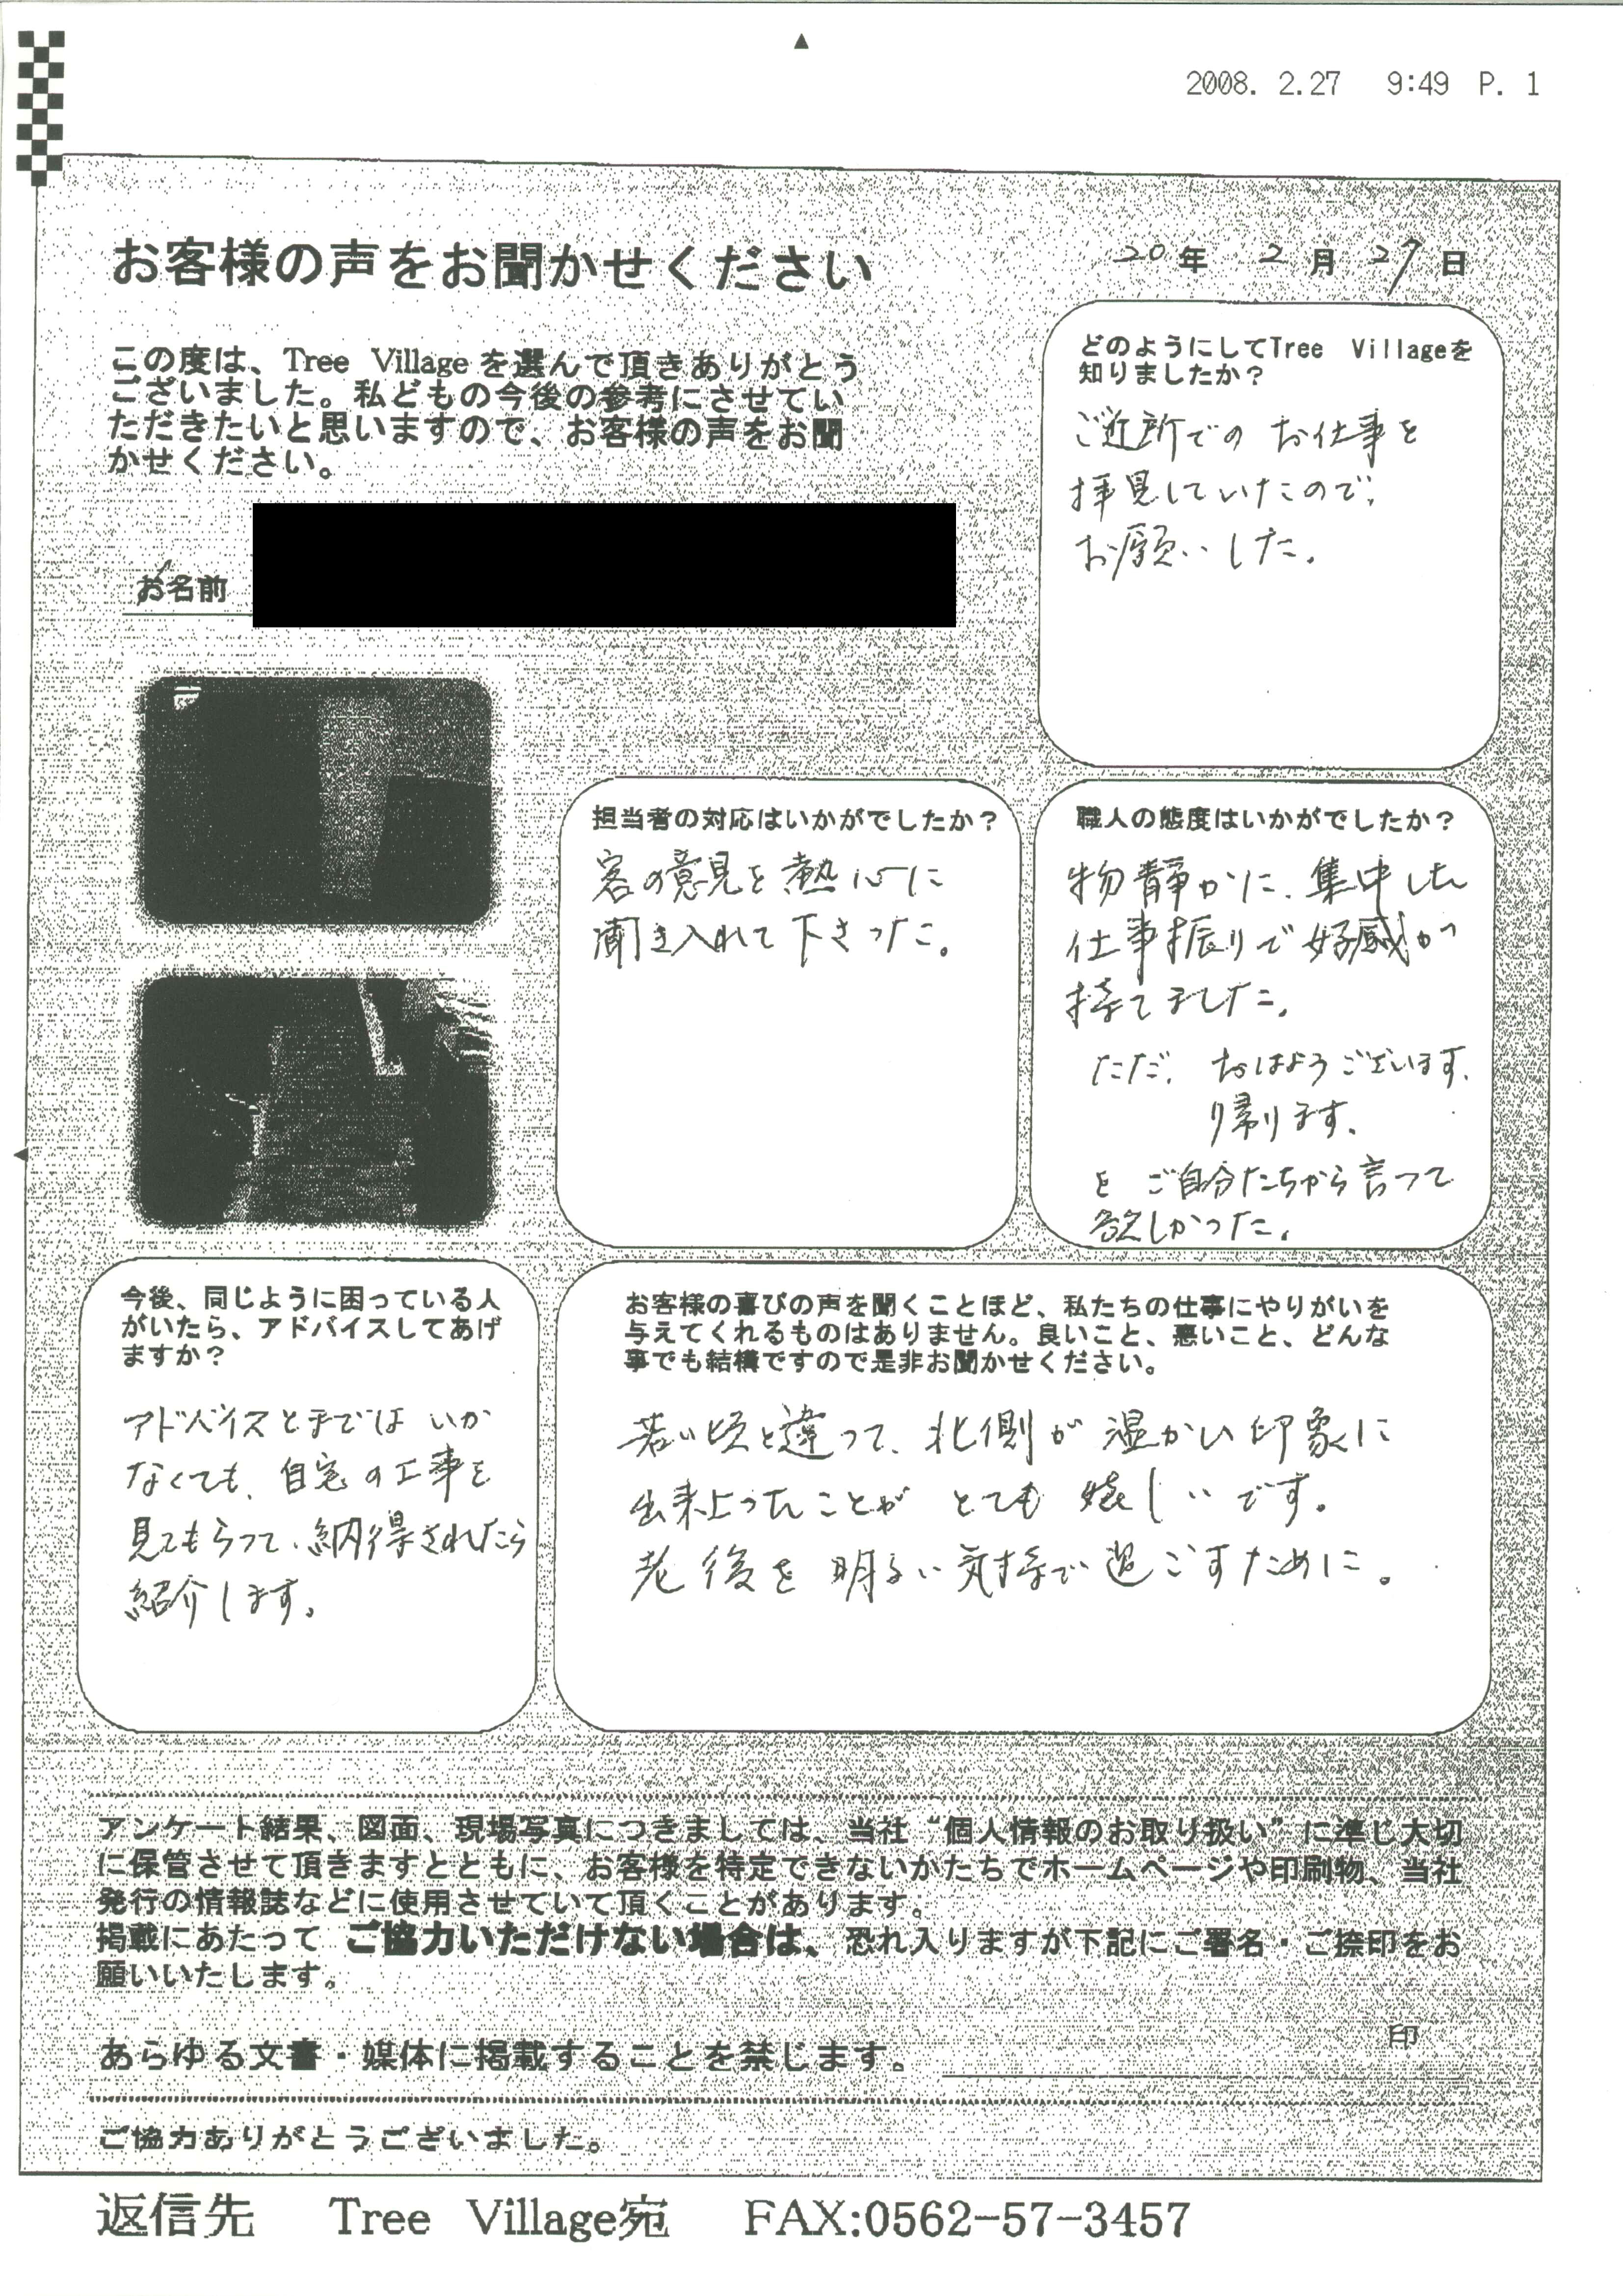 2008. 2.27 9:49 P. 1
お客様の声をお聞かせください
20年 2月 27日
この度は、Tree Villageを選んで頂きありがとう
ございました。私どもの今後の参考にさせてい
ただきたいと思いますので、お客様の声をお聞
かせください。
お名前
どのようにしてTree Villageを
知りましたか？
ご近所での お仕事を
拝見していたので、
お願いした。
担当者の対応はいかがでしたか？
客の意見を熱心に
聞き入れて下さった。
職人の態度はいかがでしたか？
物静かに、集中した
仕事振りで好感が
持てました。
ただ、おはようございます、
帰ります。
を ご自分たちから言って
欲しかった。
今後、同じように困っている人
がいたら、アドバイスしてあげ
ますか？
アドバイスとまでは いか
なくても、自宅の工事を
見てもらって、納得されたら
紹介します。
お客様の喜びの声を聞くことほど、私たちの仕事にやりがいを
与えてくれるものはありません。良いこと、悪いこと、どんな
事でも結構ですので是非お聞かせください。
若い頃と違って、北側が 温かい印象に
出来上ったことが とても 嬉しいです。
老後を 明るい気持で過ごすために。
アンケート結果、図面、現場写真につきましては、当社“個人情報のお取り扱い”に準じ大切
に保管させて頂きますとともに、お客様を特定できないかたちでホームページや印刷物、当社
発行の情報誌などに使用させていて頂くことがあります。
掲載にあたって ご協力いただけない場合は、恐れ入りますが下記にご署名・ご捺印をお
願いいたします。
あらゆる文書・媒体に掲載することを禁じます。
印
ご協力ありがとうございました。
返信先 Tree Village宛 FAX:0562-57-3457